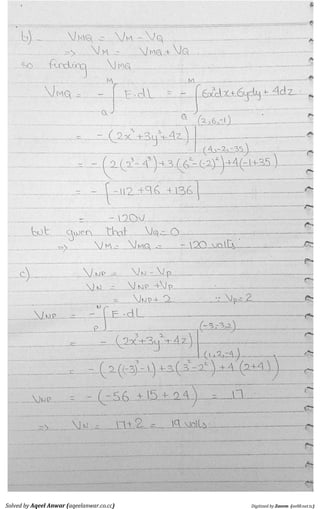 b) V_MQ = V_M - V_Q
=> V_M = V_MQ + V_Q
so finding V_MQ
V_MQ = - ∫_Q^M E·dL = - ∫_Q^M 6x²dx + 6ydy + 4dz
= - (2x³ + 3y² + 4z) |_(4,-2,-35)^(2,6,-1)
= - (2(2³-4³) + 3(6²-(-2)²) + 4(-1+35)
= - [-112 + 96 + 136]
= -120V
but given that V_Q = 0
=> V_M = V_MQ = -120 volts
c) V_NP = V_N - V_P
V_N = V_NP + V_P
= V_NP + 2 ∵ V_P = 2
V_NP = - ∫_P^N E·dL
= - (2x³ + 3y² + 4z) |_(1,2,-4)^(-3,3,2)
= - (2((-3)³-1) + 3(3²-2²) + 4(2+4))
V_NP = - (-56 + 15 + 24) = 17
=> V_N = 17 + 2 = 19 volts
Solved by Aqeel Anwar (aqeelanwar.co.cc)